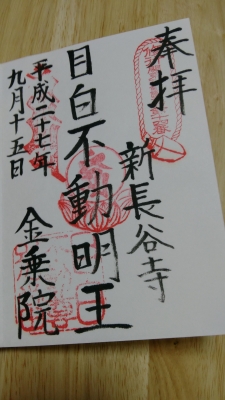 奉拝
新長谷寺
目白不動明王
平成二十七年
九月十五日
金乗院